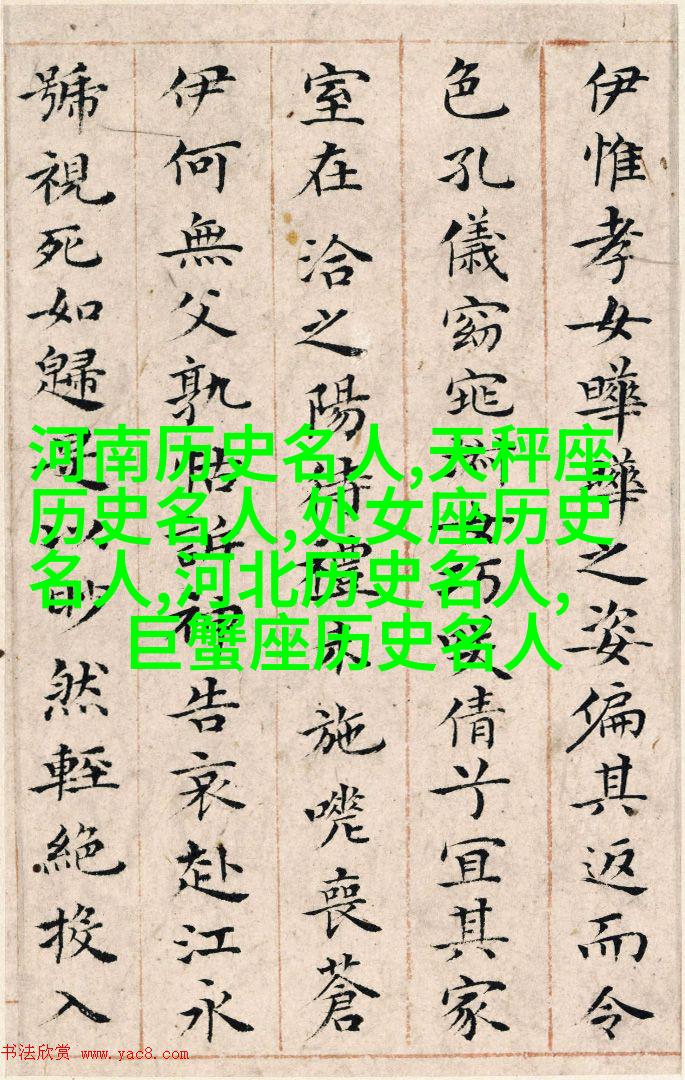 伊惟孝女曄曄之姿偏其返而令
色孔儀窈窕淑女巧笑倩兮宜其家
室在洽之陽待禮未施嗟喪蒼
伊何無父孰怙訴神告哀赴江永
號視死如歸是以眇然輕絕投入
河南历史名人,天秤座
历史名人,处女座历史
名人,河北历史名人,
巨蟹座历史名人
书法欣赏 www.yac8.com